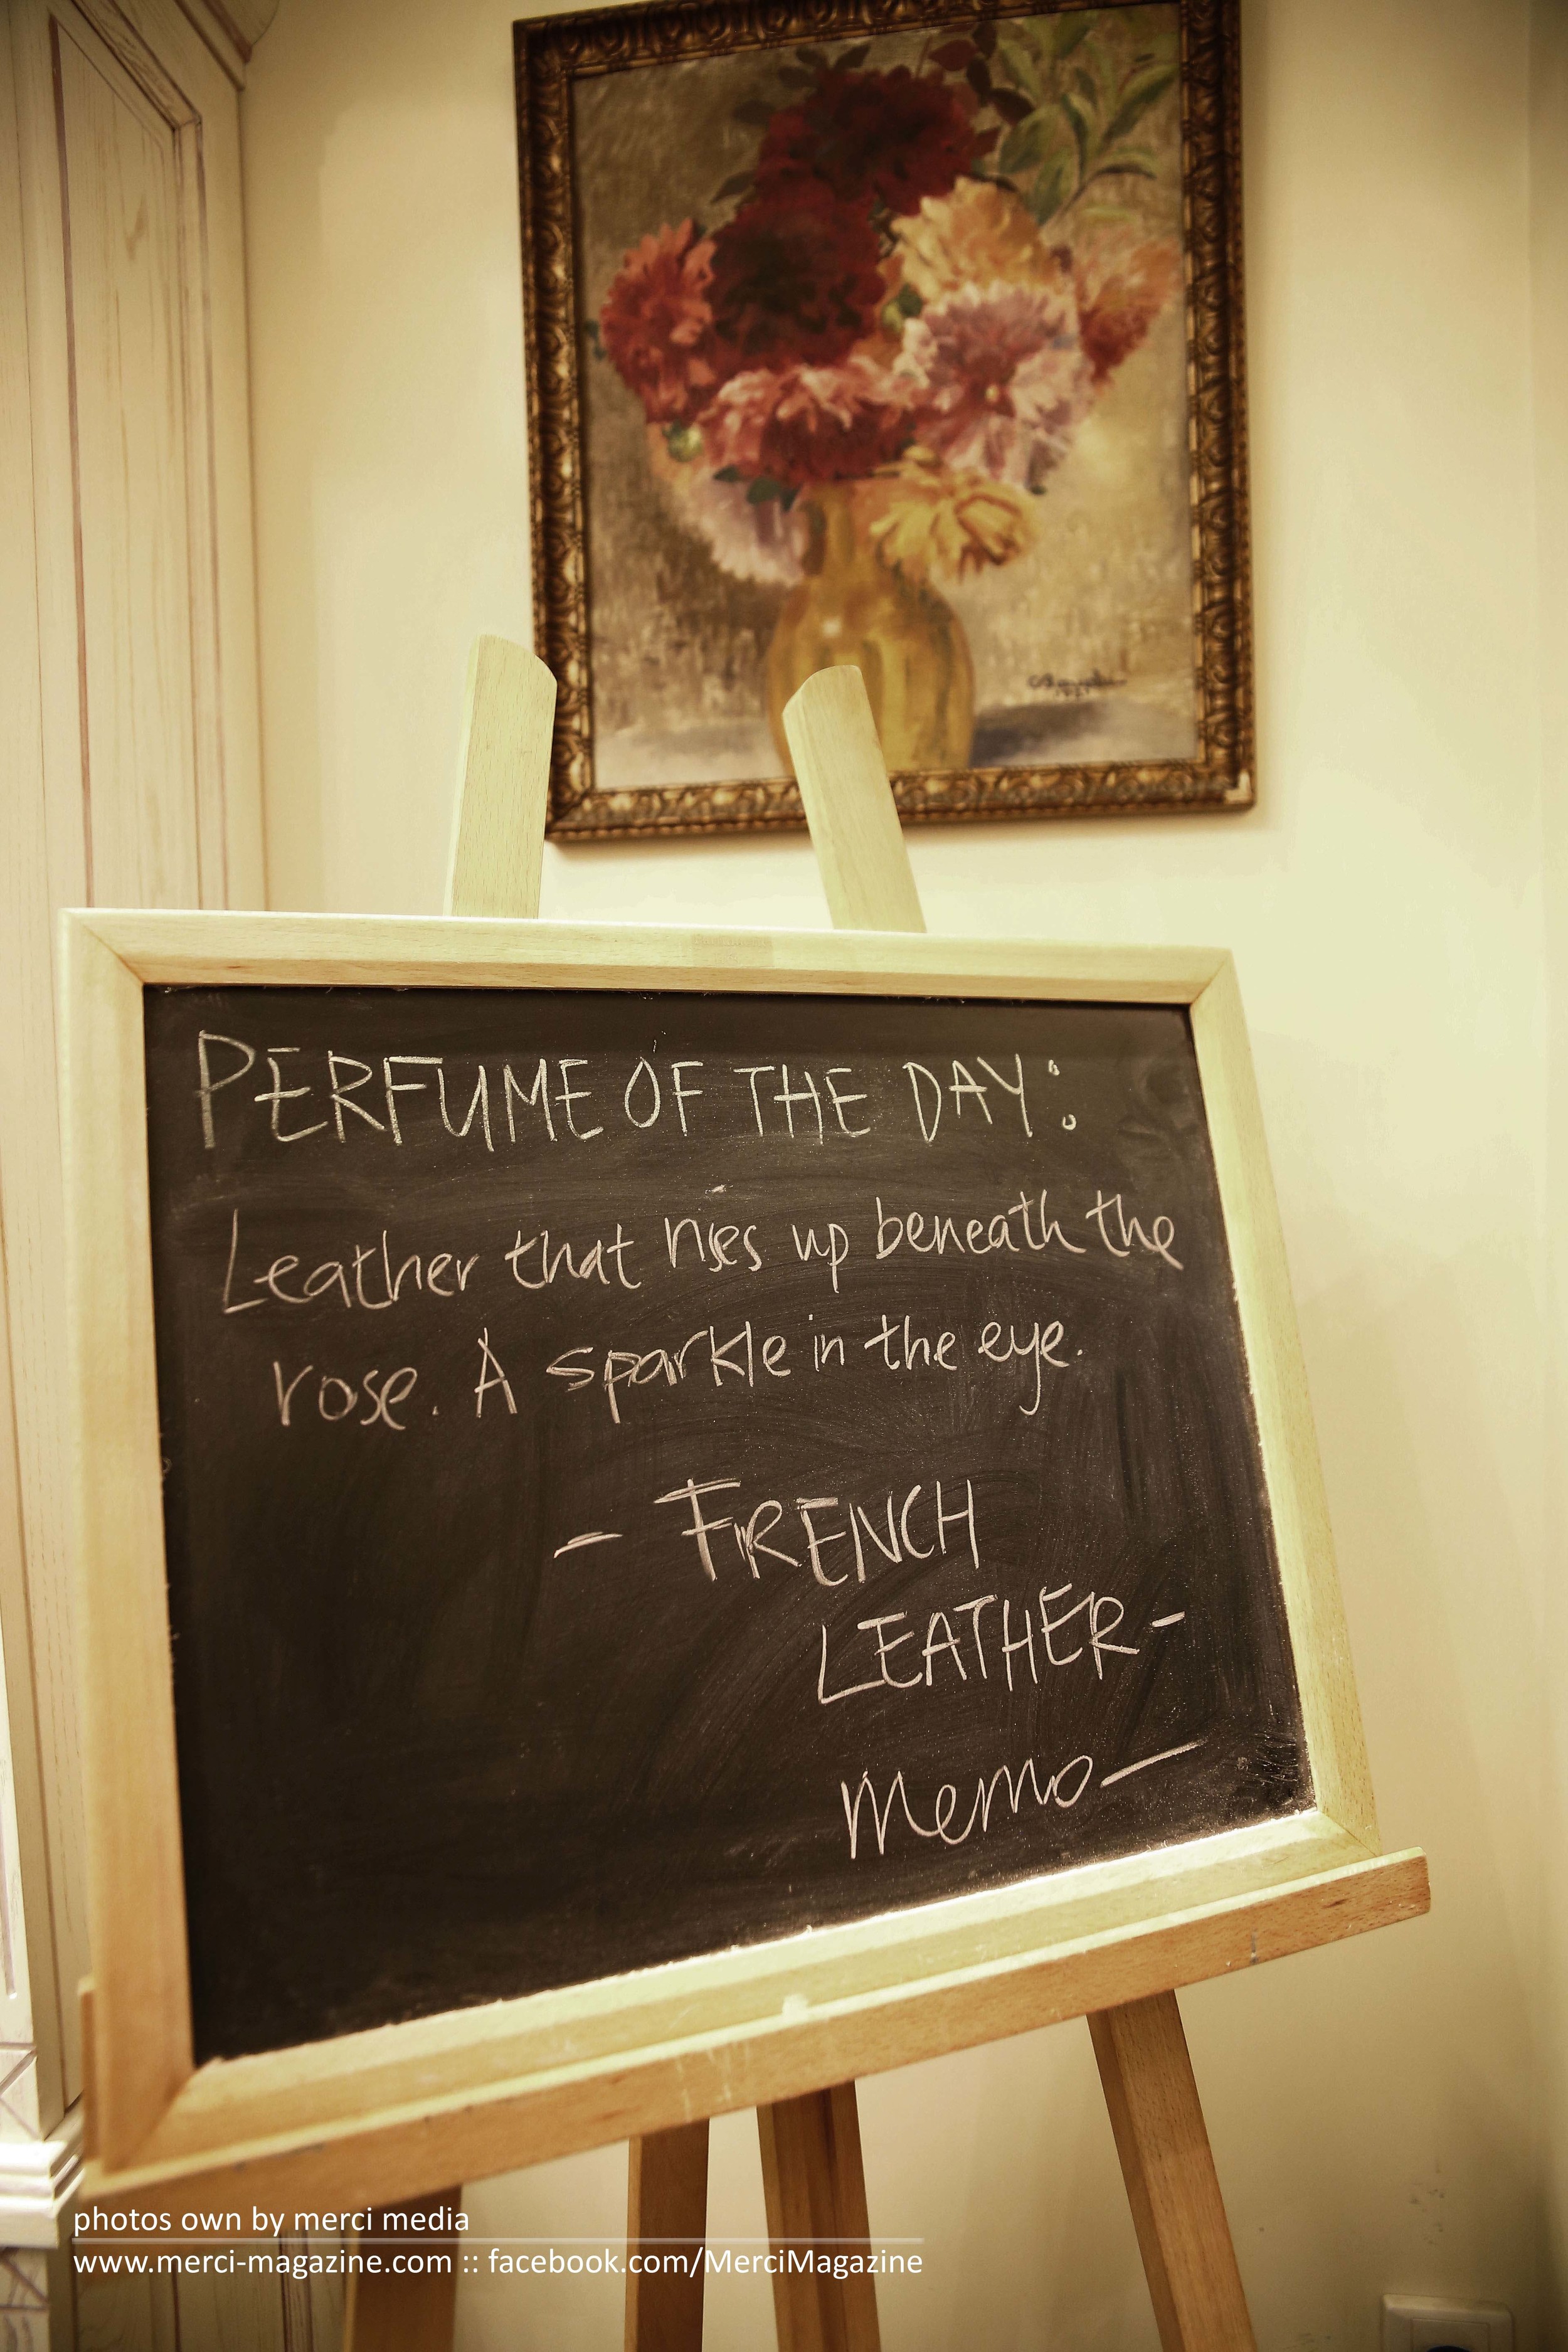 PERFUME OF THE DAY:
Leather that rises up beneath the
rose. A sparkle in the eye.
- FRENCH
LEATHER -
Memo -
photos own by merci media
www.merci-magazine.com :: facebook.com/MerciMagazine